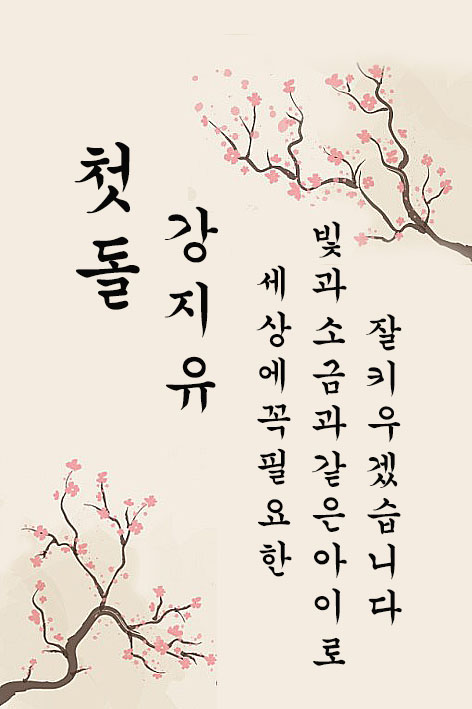 첫돌
강지유
세상에꼭필요한
빛과소금과같은아이로
잘키우겠습니다